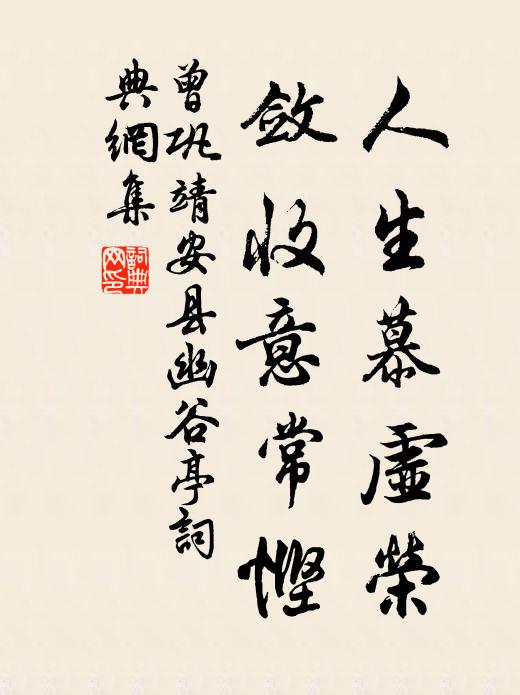 人生慕虛榮
斂收意常慳
曾巩靖安县幽谷亭詞
典網集
詞典
网印